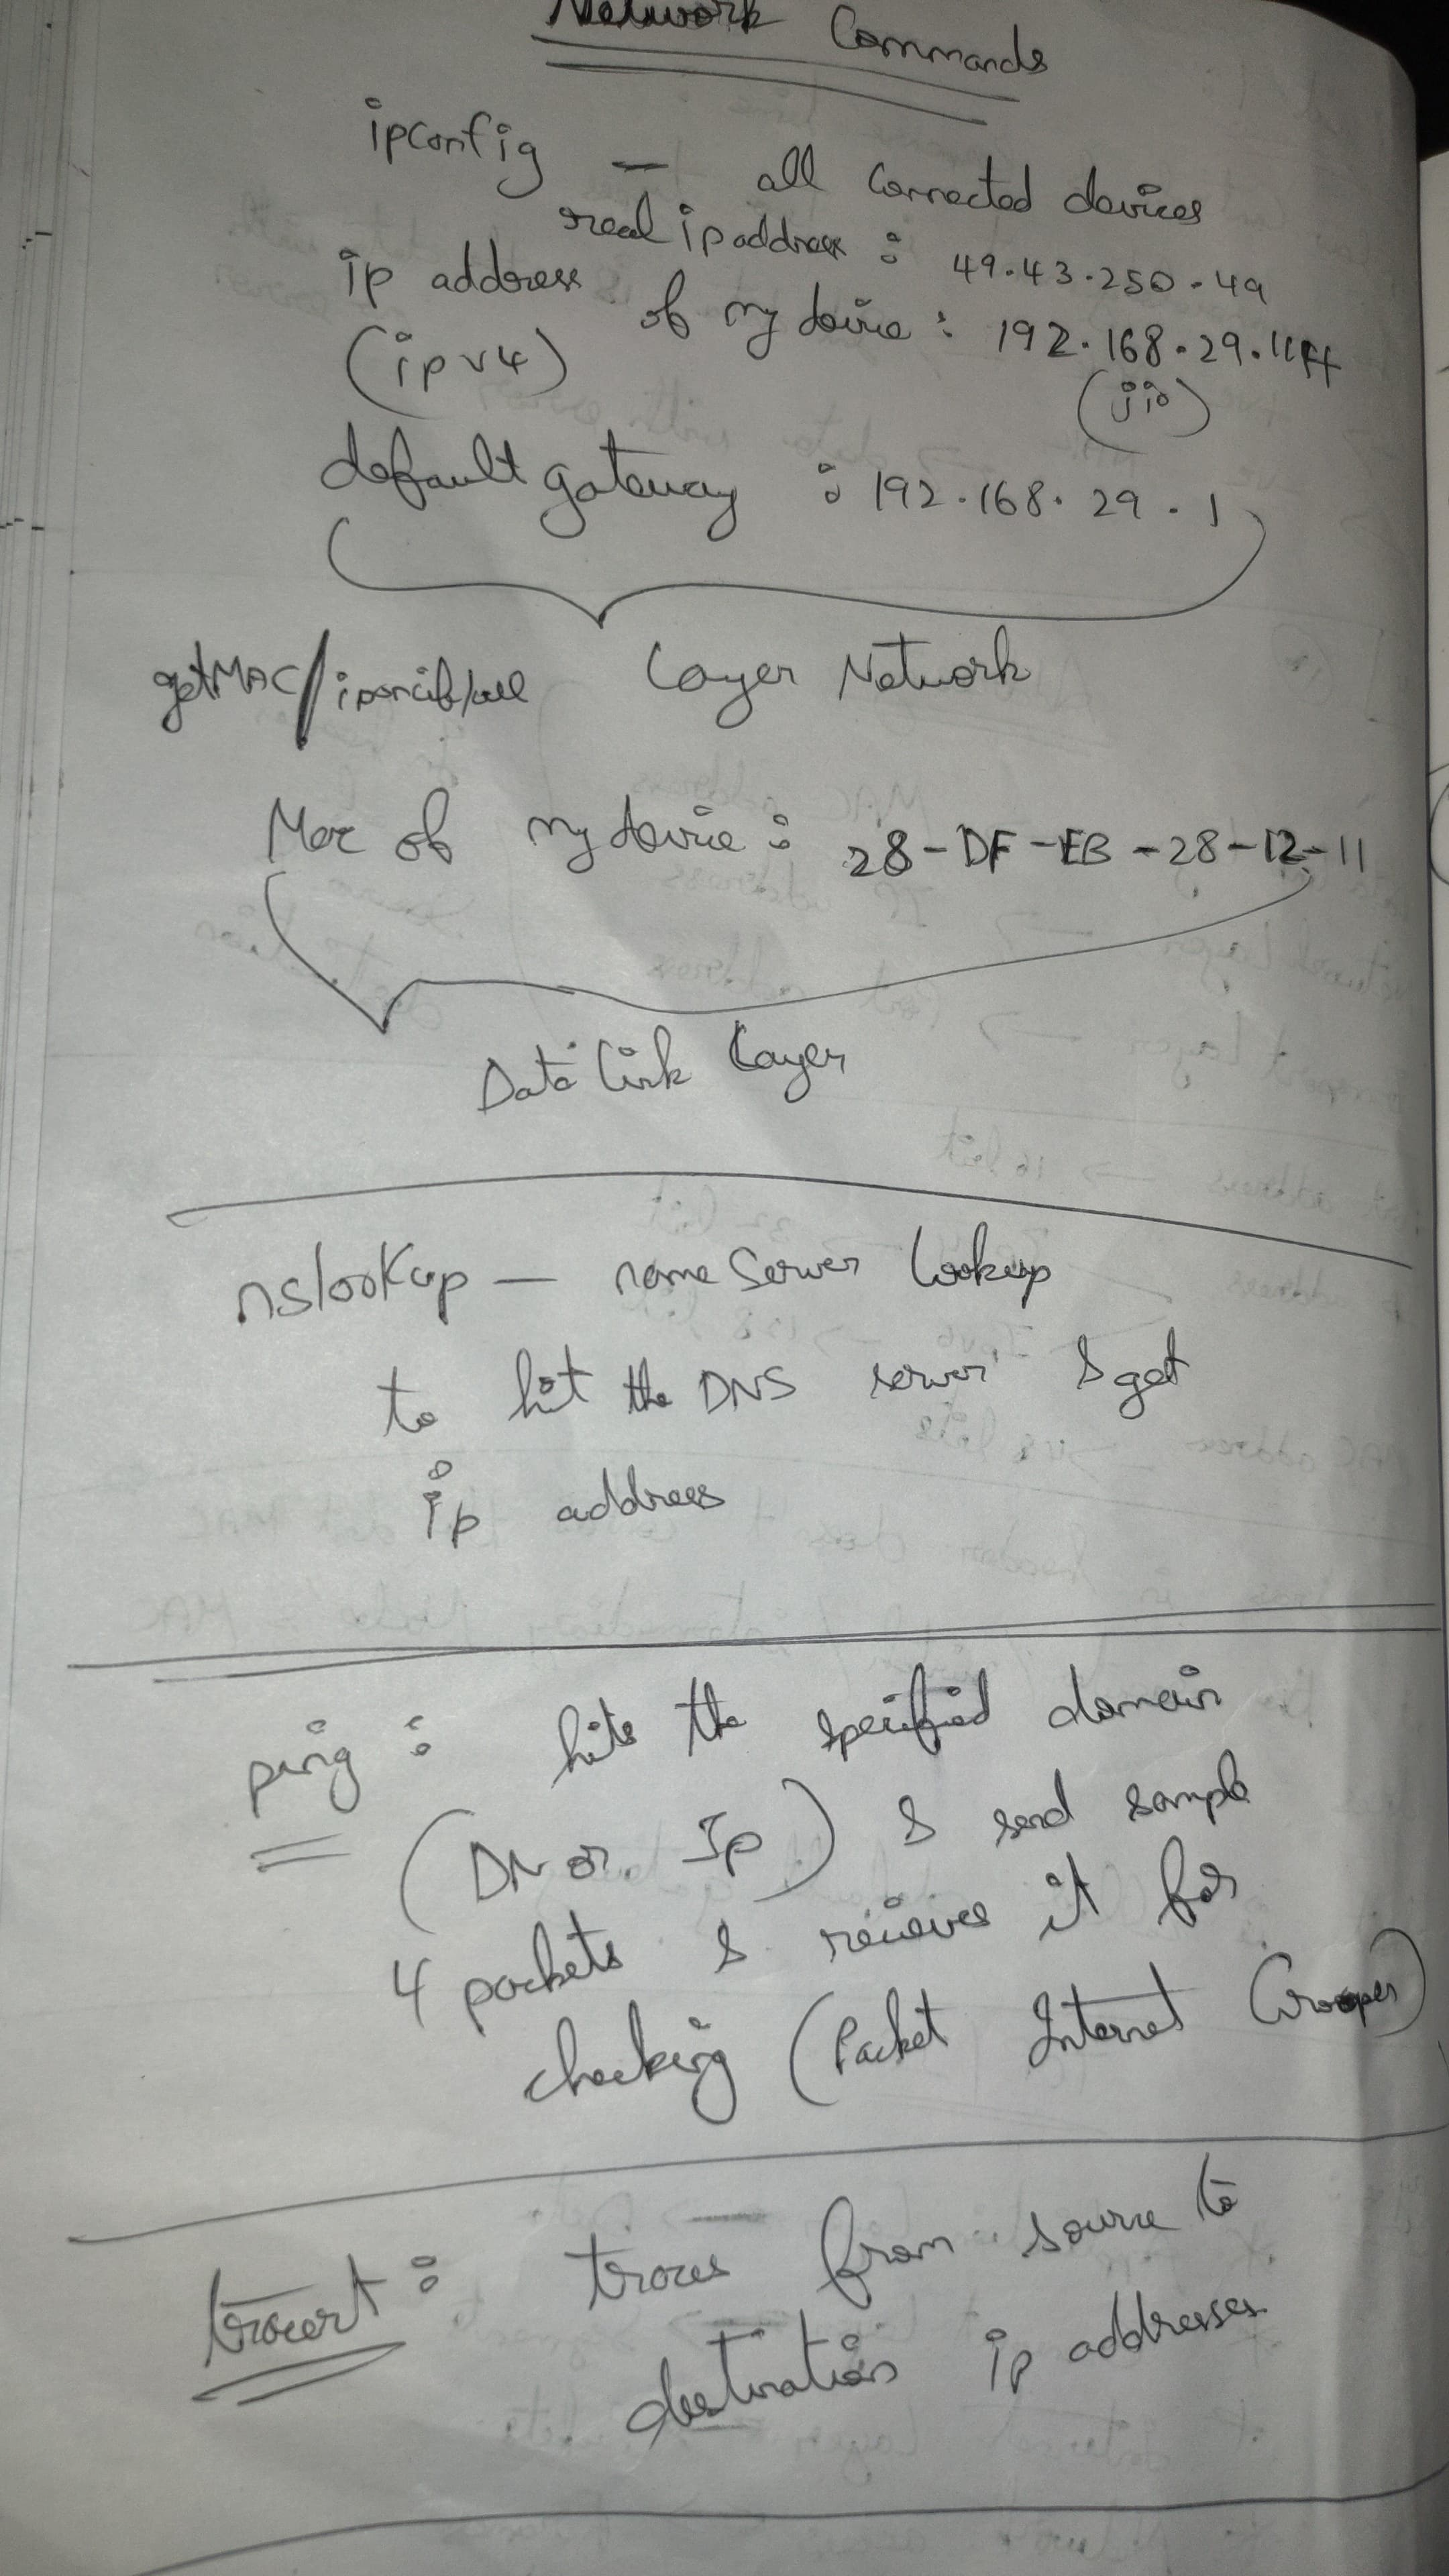 Network Commands
ipconfig — all connected devices
real ip address : 49.43.250.49
ip address of my device : 192.168.29.
(ipv4) (jio)
default gateway : 192.168.29.1
Layer Network
getMAC/
Mac of my device : 28-DF-EB-28-12-11
Data Link Layer
nslookup — name Server Lookup
to hit the DNS server & get
ip address
ping : hits the specified domain
(DN or Ip) & send sample
4 packets & recieves it for
checking (Packet Internet Grooper)
tracert : traces from source to
destination ip addresses